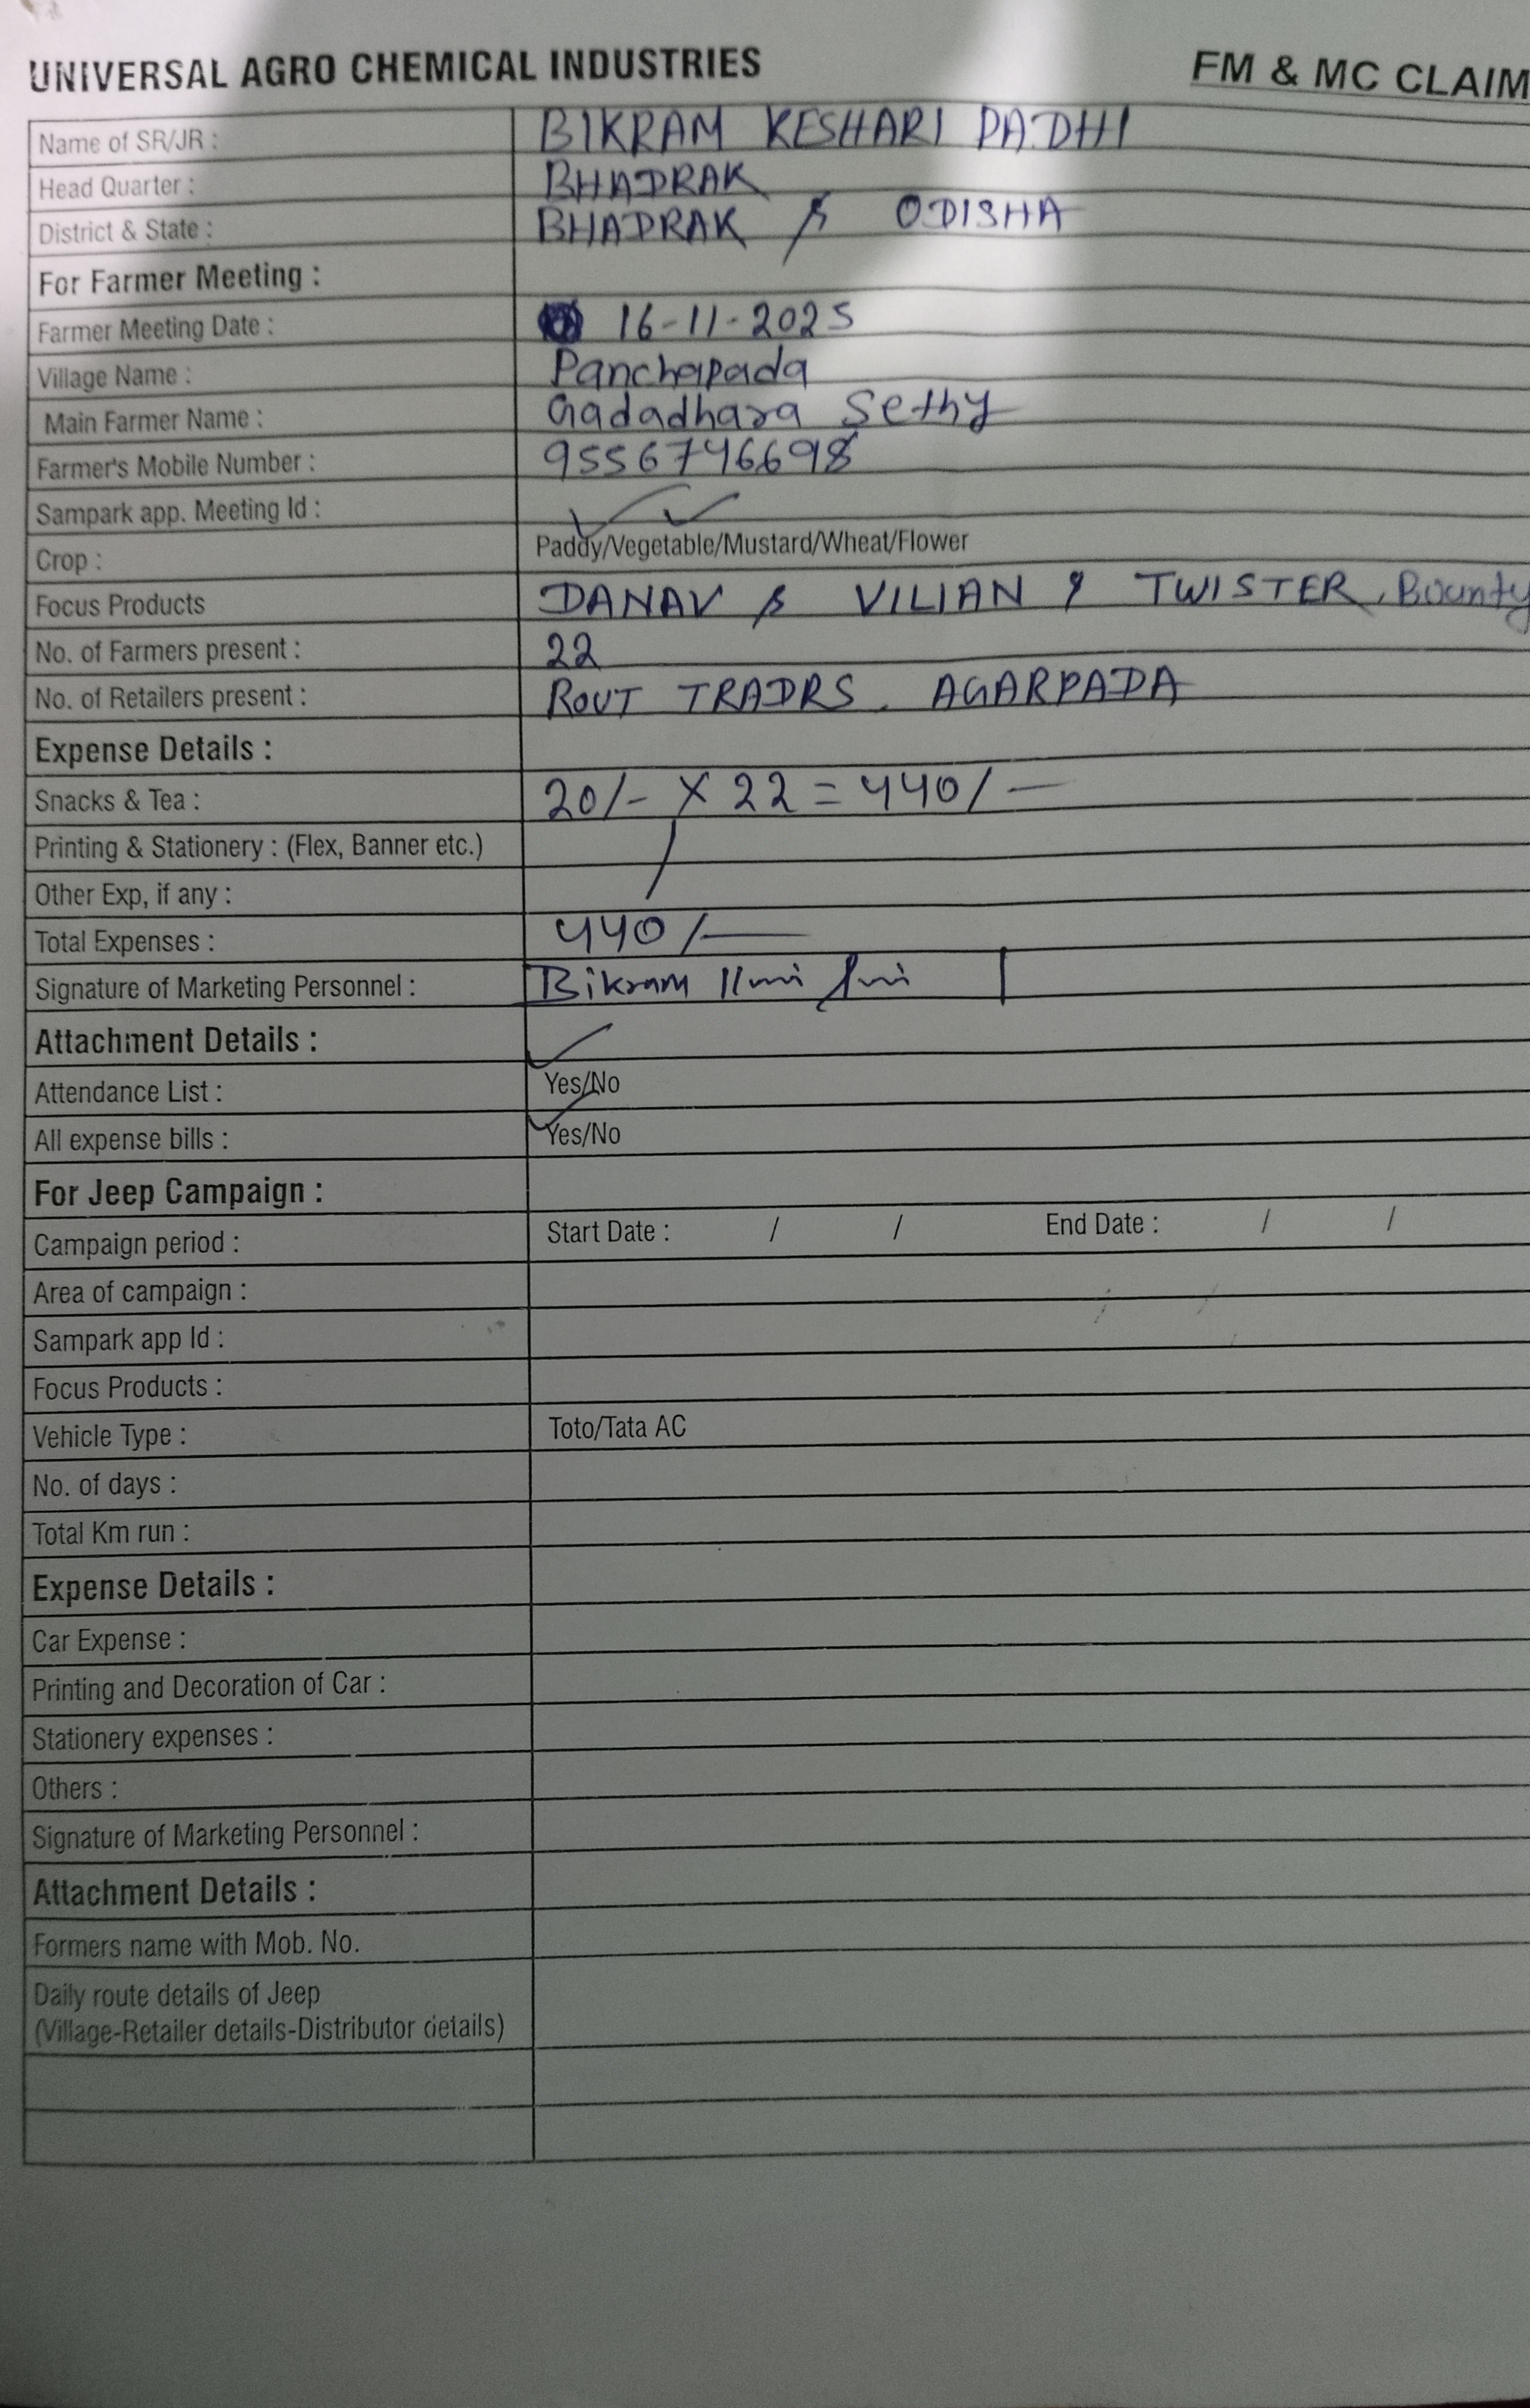 UNIVERSAL AGRO CHEMICAL INDUSTRIES FM & MC CLAIM
Name of SR/JR : BIKRAM KESHARI PADHI
Head Quarter : BHADRAK
District & State : BHADRAK & ODISHA
For Farmer Meeting :
Farmer Meeting Date : 16-11-2025
Village Name : Panchapada
Main Farmer Name : Gadadhara Sethy
Farmer's Mobile Number : 9556746698
Sampark app. Meeting Id :
Crop : Paddy/Vegetable/Mustard/Wheat/Flower
Focus Products DANAV & VILIAN & TWISTER, Bounty
No. of Farmers present : 22
No. of Retailers present : ROUT TRADRS. AGARPADA
Expense Details :
Snacks & Tea : 20/- X 22 = 440/-
Printing & Stationery : (Flex, Banner etc.)
Other Exp, if any :
Total Expenses : 440/-
Signature of Marketing Personnel : Bikram
Attachment Details :
Attendance List : Yes/No
All expense bills : Yes/No
For Jeep Campaign :
Campaign period : Start Date : / / End Date : / /
Area of campaign :
Sampark app Id :
Focus Products :
Vehicle Type : Toto/Tata AC
No. of days :
Total Km run :
Expense Details :
Car Expense :
Printing and Decoration of Car :
Stationery expenses :
Others :
Signature of Marketing Personnel :
Attachment Details :
Formers name with Mob. No.
Daily route details of Jeep
(Village-Retailer details-Distributor details)